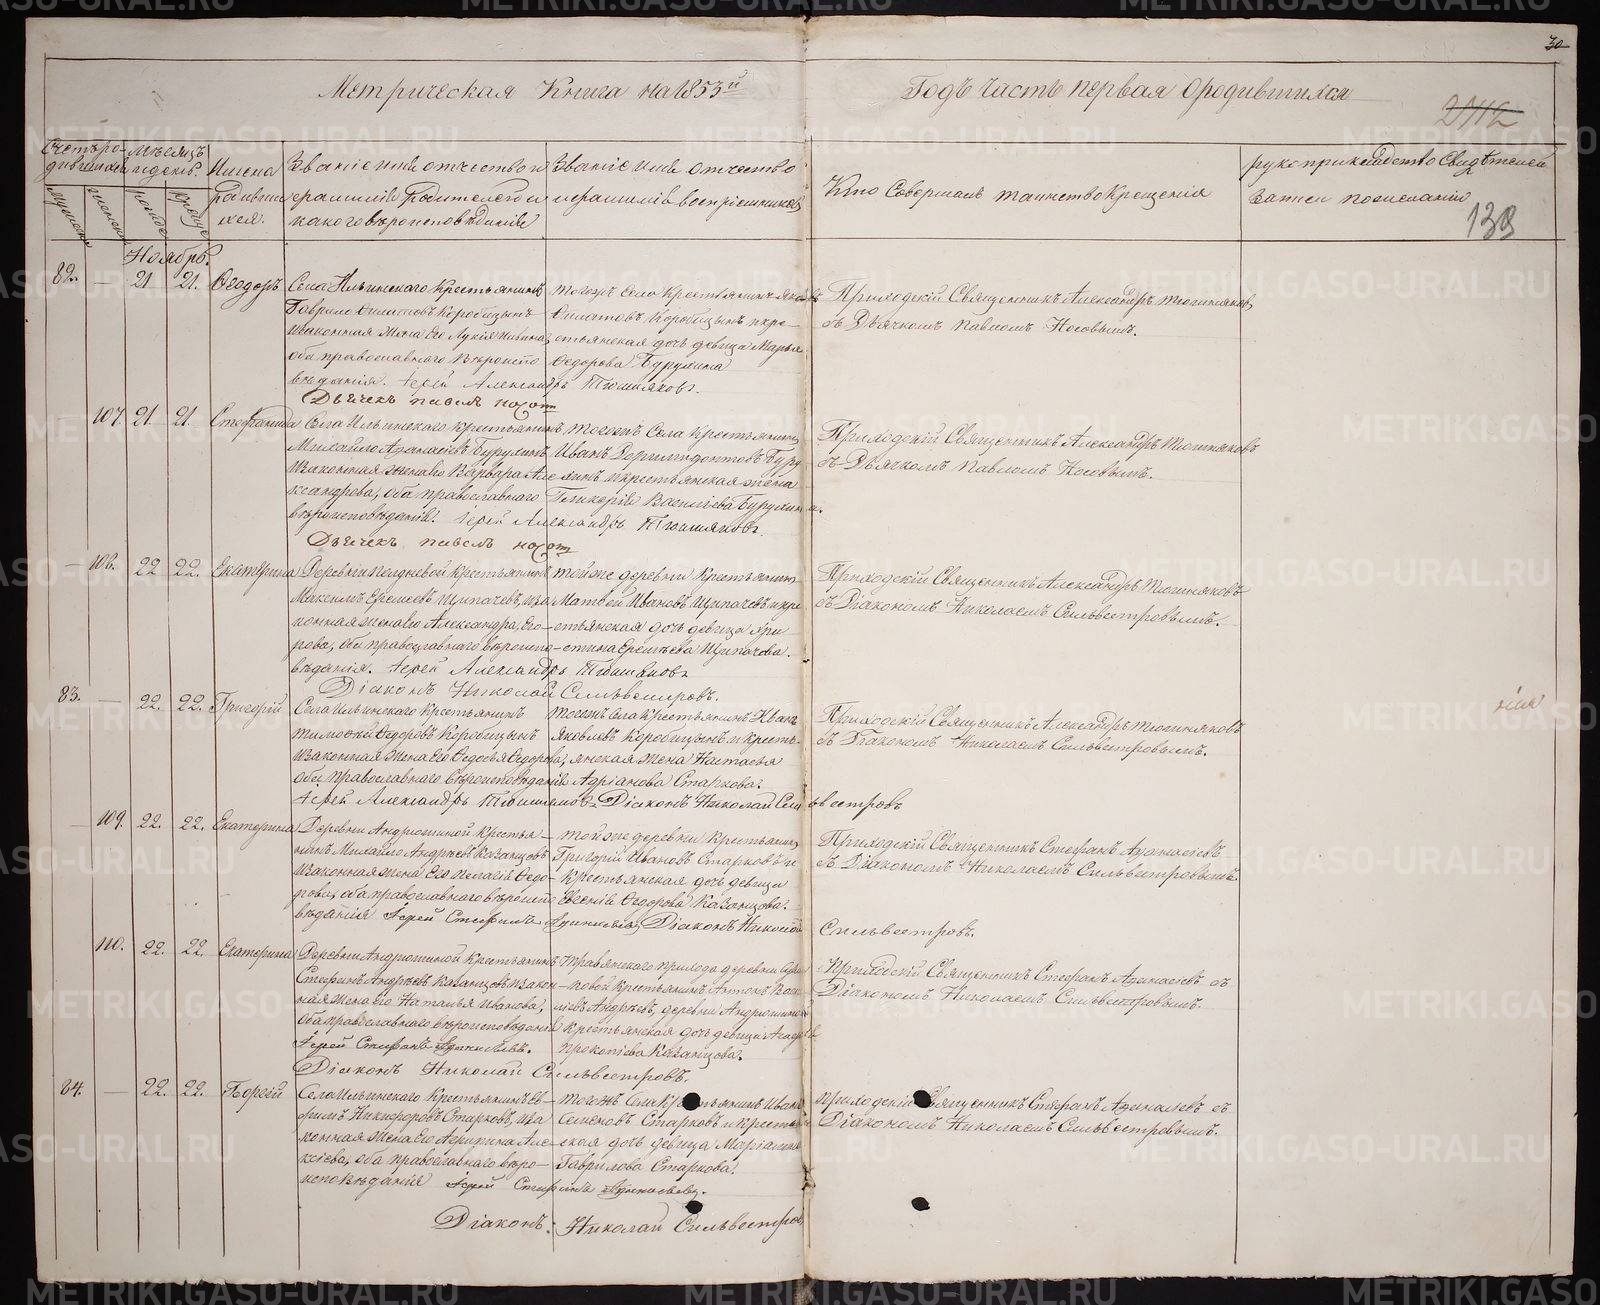 30
Метрическая Книга на 1853й Годъ часть первая о родившихся
2112
Счетъ ро-
дившихся
Мѣсяцъ
и день.
Имена
родивши
хся.
Званіе имя отчество и
фамилія Родителей и
какого вѣроисповѣданія
Званіе имя отчество
и фамилія воспріемниковъ
Кто Совершалъ таинство Крещенія
рукоприкладство Свидѣтелей
записи по желанію
138
Ноябрь.
82. — 21 21. Ѳеодоръ
Села Ильинскаго Крестьянинъ
Гаврило Филатовъ Коробицынъ
и законная Жена Его Лукія
оба православнаго Вѣроиспо
вѣданія. Іерей Александръ Тюшняковъ.
Дьячекъ павелъ носовъ
тогожъ Села Крестьянинъ Яковъ
Филатовъ Коробицынъ и кре-
стьянская дочь девица Марья
Ѳедорова Бурухина
Приходскій Священникъ Александръ Тюшняковъ,
съ Дьячкомъ Павломъ Носовымъ.
107. 21 21. Стефанида
Села Ильинскаго крестьянинъ
Михайло Афанасьевъ Бурухинъ
и законная жена его Варвара Але
ксандрова, оба православнаго
вѣроисповѣданія. Іерей Александръ Тюшняковъ.
Дьячекъ павелъ носовъ
тогожъ Села Крестьянинъ
Иванъ Буру
хинъ и крестьянская жена
Гликерія Васильева Бурухина.
Приходскій Священникъ Александръ Тюшняковъ
съ Дьячкомъ Павломъ Носовымъ.
— 108. 22 22. Екатерина
Деревни Полдневой Крестьянинъ
Максимъ Еремеевъ Щипачевъ, и за
конная жена его Александра, Его-
рова, оба православнаго вѣроиспо-
вѣданія. Іерей Александръ Тюшняковъ
Діаконъ Николай Сильвестровъ.
той же деревни Крестьянинъ
Матвей Ивановъ Щипачевъ и кре
стьянская дочь девица Хри
стина Еремеева Щипачова.
Приходскій Священникъ Александръ Тюшняковъ
съ Діакономъ Николаемъ Сильвестровымъ.
83. — 22. 22. Григорій
Села Ильинскаго Крестьянинъ
Тимофей Ѳедоровъ Коробицынъ
и законная жена его Ѳедосья Ѳедорова,
оба православнаго вѣроисповѣданія
Іерей Александръ Тюшняковъ Діаконъ Николай Сильвестровъ
тогожъ Села Крестьянинъ Иванъ
Яковлевъ Коробицынъ и кресть-
янская жена Настасья
Адріанова Старкова.
Приходскій Священникъ Александръ Тюшняковъ
съ Діакономъ Николаемъ Сильвестровымъ.
— 109. 22. 22. Екатерина
Деревни Андрюшиной Крестья-
нинъ Михайло Андреевъ Казанцовъ
и законная жена Его Пелагія Ѳедо-
рова, оба православнаго вѣроиспо
вѣданія Іерей Стефанъ Афанасьевъ Діаконъ Николай Сильвестровъ.
той же деревни Крестьянинъ
Григорій Ивановъ Старковъ и
Крестьянская дочь девица
Евгенія Ѳедорова Казанцова.
Приходскій Священникъ Стефанъ Афанасіевъ
съ Діакономъ Николаемъ Сильвестровымъ.
110. 22. 22. Екатерина
Деревни Андрюшиной Крестьянинъ
Стефанъ Андреевъ Казанцовъ и закон
ная жена его Наталья Иванова,
оба православнаго вѣроисповѣданія
Іерей Стефанъ Афанасьевъ.
Діаконъ Николай Сильвестровъ.
Травянскаго прихода деревни
Крестьянинъ Антонъ Васи
льевъ Андреевъ, деревни Андрюшиной
Крестьянская дочь девица Агафья
Прокопіева Казанцова.
Приходскій Священникъ Стефанъ Афанасіевъ съ
Діакономъ Николаемъ Сильвестровымъ.
84. — 22. 22. Георгій
Села Ильинскаго Крестьянинъ Е-
фимъ Никифоровъ Старковъ, и за
конная жена Его Агрипина Але-
ксіева, оба православнаго вѣро-
исповѣданія Іерей Стефанъ Афанасьевъ.
Діаконъ: Николай Сильвестровъ
тогожъ Села Крестьянинъ Иванъ
Семеновъ Старковъ и крестьян
ская дочь девица
Гаврилова Старкова.
Приходскій Священникъ Стефанъ Афанасіевъ съ
Діакономъ Николаемъ Сильвестровымъ.
METRIKI.GASO-URAL.RU